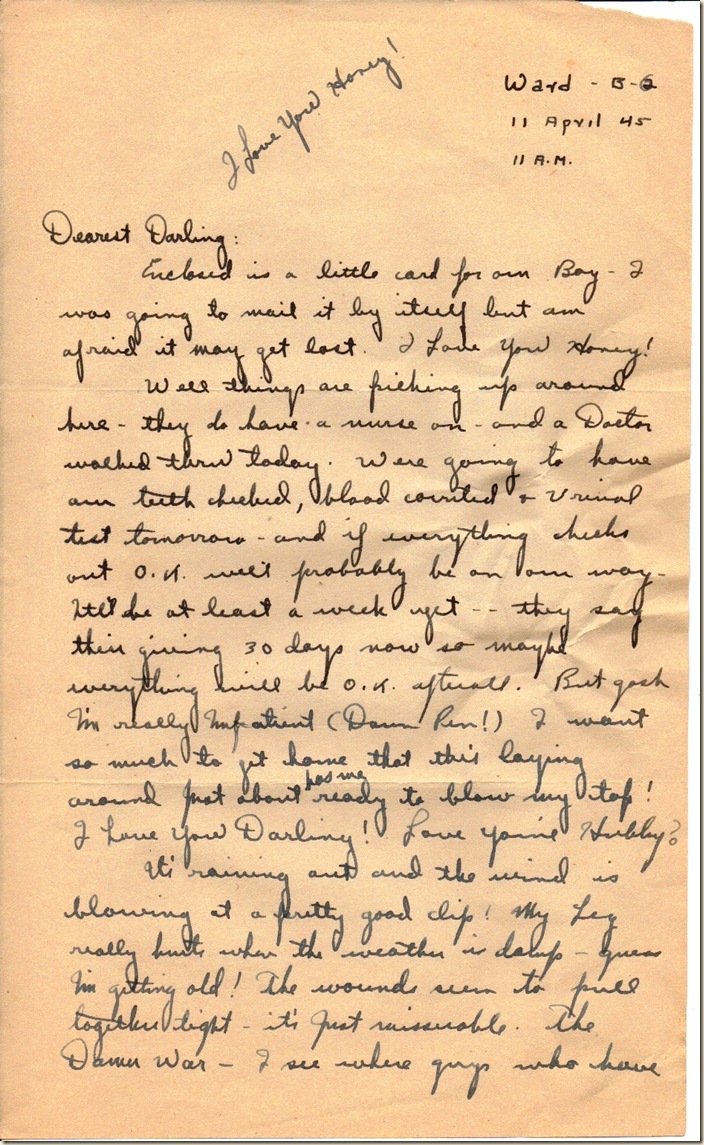 I Love You Honey!
Ward - B-6
11 April 45
11 A.M.
Dearest Darling:
Enclosed is a little card for our Boy - I
was going to mail it by itself but am
afraid it may get lost. I Love You Honey!
Well things are picking up around
here - they do have a nurse on - and a Doctor
walked thru today. Were going to have
our teeth checked, blood counted & Urinal
test tomorrow - and if everything checks
out O.K. we'll probably be on our way -
It'll be at least a week yet -- they say
their giving 30 days now so maybe
everything will be O.K. afterall. But gosh
I'm really Impatient (Damn Pen!) I want
so much to get home that this laying
around just about has me ready to blow my top!
I Love You Darling! Love your Hubby?
It's raining out and the wind is
blowing at a pretty good clip! My Leg
really hurts when the weather is damp - guess
I'm getting old! The wounds seem to pull
together tight - it's just misserable. The
Damn War - I see where guys who have